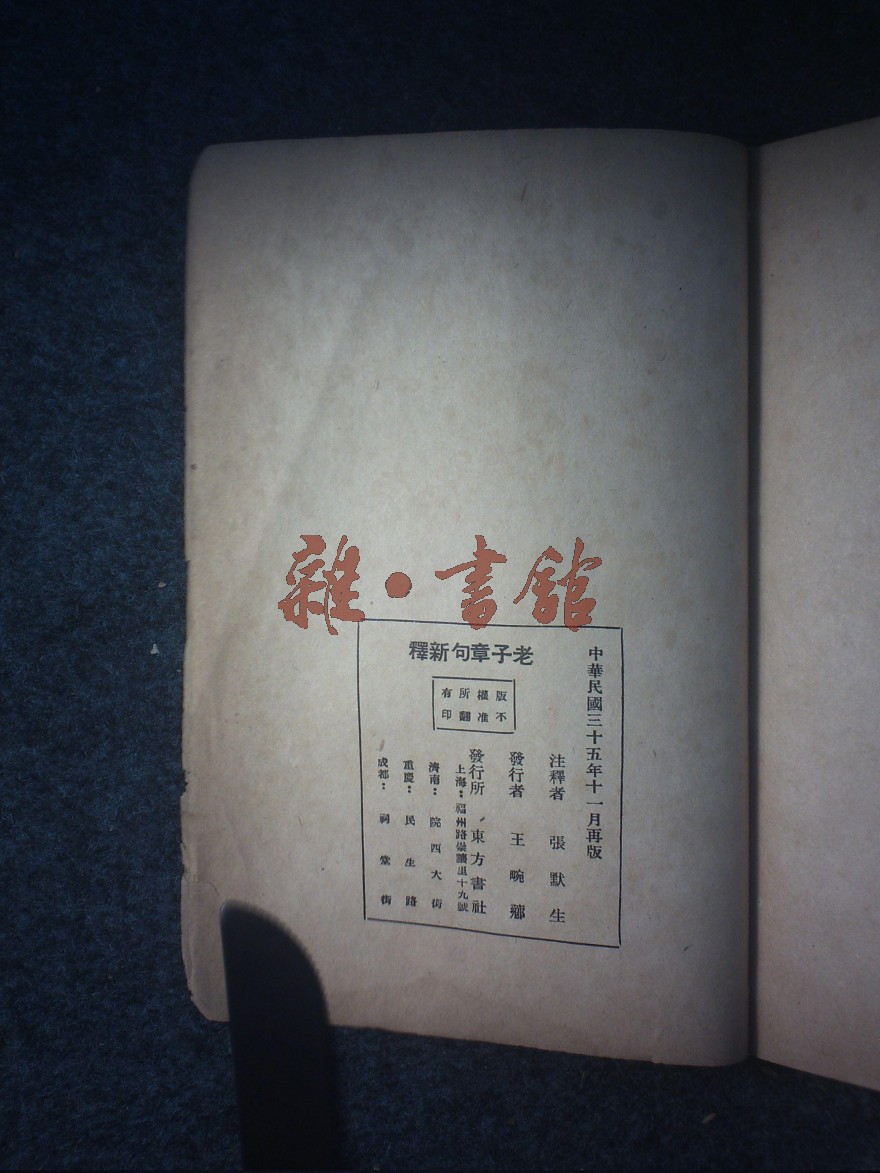 雜·書舘
中華民國三十五年十一月再版
老子章句新釋
版權所有
不准翻印
注釋者 張默生
發行者 王畹薌
發行所 東方書社
上海：福州路崇讓里十九號
濟南：院西大街
重慶：民生路
成都：祠堂街